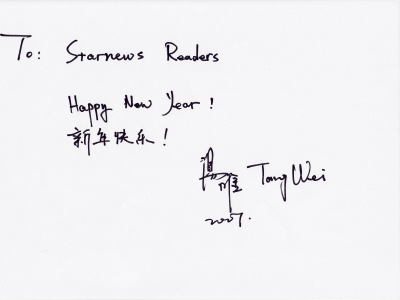 To: Starnews Readers
Happy New Year!
新年快乐!
Tang Wei
2007.